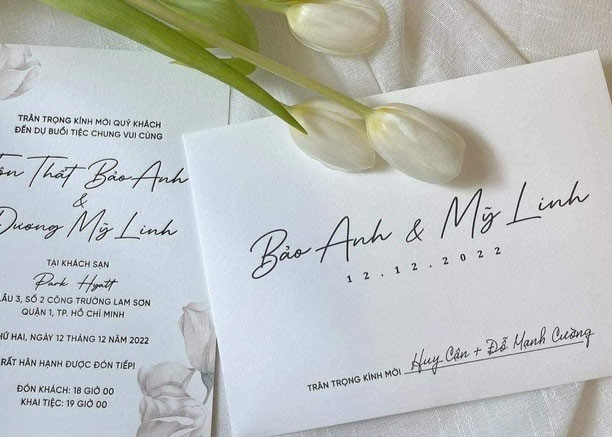 TRÂN TRỌNG KÍNH MỜI QUÝ KHÁCH
ĐẾN DỰ BUỔI TIỆC CHUNG VUI CÙNG
Thất Bảo Anh
&
Dương Mỹ Linh
TẠI KHÁCH SẠN
Park Hyatt
LẦU 3, SỐ 2 CÔNG TRƯỜNG LAM SƠN
QUẬN 1, TP. HỒ CHÍ MINH
HAI, NGÀY 12 THÁNG 12 NĂM 2022
RẤT HÂN HẠNH ĐƯỢC ĐÓN TIẾP!
ĐÓN KHÁCH: 18 GIỜ 00
KHAI TIỆC: 19 GIỜ 00
Bảo Anh & Mỹ Linh
12.12.2022
TRÂN TRỌNG KÍNH MỜI Huy Cận + Đỗ Mạnh Cường